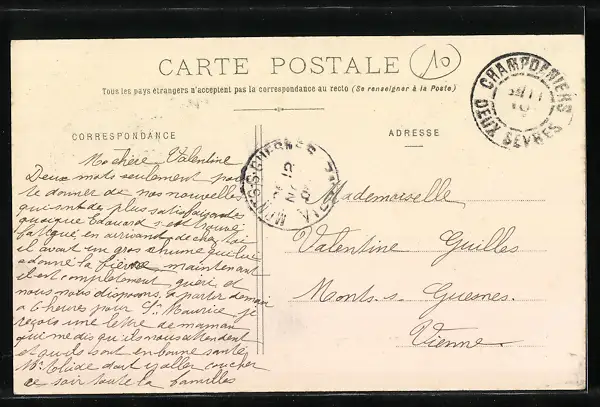 CARTE POSTALE
10
Tous les pays étrangers n'acceptent pas la correspondance au recto (Se renseigner à la Poste)
CORRESPONDANCE
ADRESSE
CHAMPDENIERS
DEUX SEVRES
MONTS-S-GUESNES
VIENNE
Ma chère Valentine
Deux mots seulement pour
te donner de nos nouvelles
qui sont des plus satisfaisantes
quoique Edouard s'est trouvé
fatigué en arrivant de chez toi
il avait un gros rhume qui lui
a donné la fièvre maintenant
il est complètement guéri et
nous nous disposons à partir demain
à 6 heures pour St Maurice je
reçois une lettre de maman
qui me dis qu'ils nous attendent
et qu'ils sont en bonne santé
doit y aller coucher
ce soir toute la familles
Mademoiselle
Valentine Guilles
Monts. s. Guesnes.
Vienne